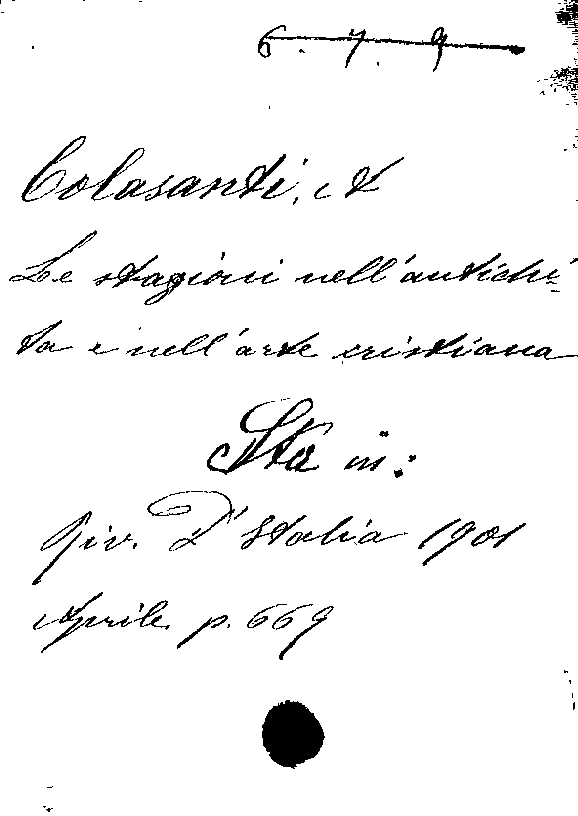 6. 7. 9
Colasanti, A
Le stagioni nell'antichi-
ta e nell'arte cristiana
Sta in:
Riv. D'Italia 1901
Aprile p. 669